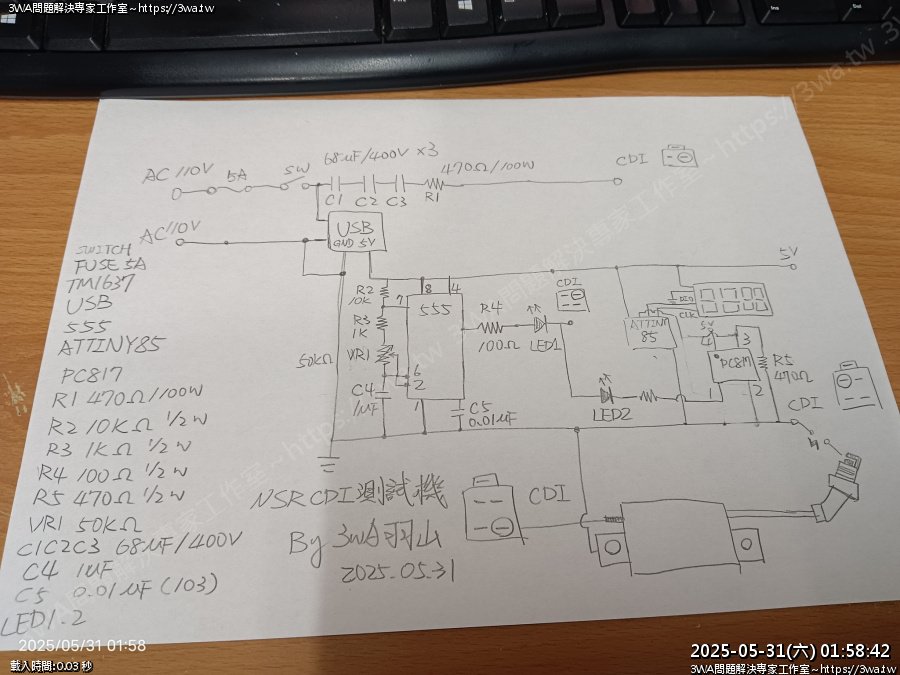 3WA問題解決專家工作室~https://3wa.tw
3WA問題解決專家工作室~https://3wa.tw
AC 110V
5A
SW
68uF/400V x3
C1 C2 C3
470Ω/100W
R1
CDI
AC 110V
USB
GND 5V
5V
SWITCH
FUSE 5A
TM1637
USB
555
ATTINY85
PC817
R1 470Ω/100W
R2 10KΩ 1/2W
R3 1KΩ 1/2W
R4 100Ω 1/2W
R5 470Ω 1/2W
VR1 50KΩ
C1C2C3 68uF/400V
C4 1uF
C5 0.01uF (103)
LED1.2
R2
10K
R3
1K
50KΩ VR1
C4
1uF
7
8
4
555
6
2
1
C5
0.01uF
R4
100Ω
LED1
CDI
LED2
ATTINY
85
DIO
CLK
5V
4
3
PC817
1
2
R5
470Ω
CDI
NSR CDI測試機
By 3WA羽山
2025.05.31
CDI
2025/05/31 01:58
載入時間:0.03 秒
2025-05-31(六) 01:58:42
3WA問題解決專家工作室~https://3wa.tw